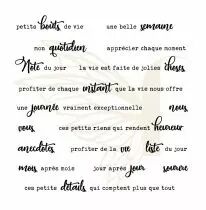 petits bouts de vie une belle semaine
mon quotidien apprécier chaque moment
Note du jour la vie est faite de jolies choses
profiter de chaque instant que la vie nous offre
une journée vraiment exceptionnelle nous
vous ces petits riens qui rendent heureux
anecdotes profiter de la vie liste du jour
mois après mois jour après jour sourire
ces petits détails qui comptent plus que tout